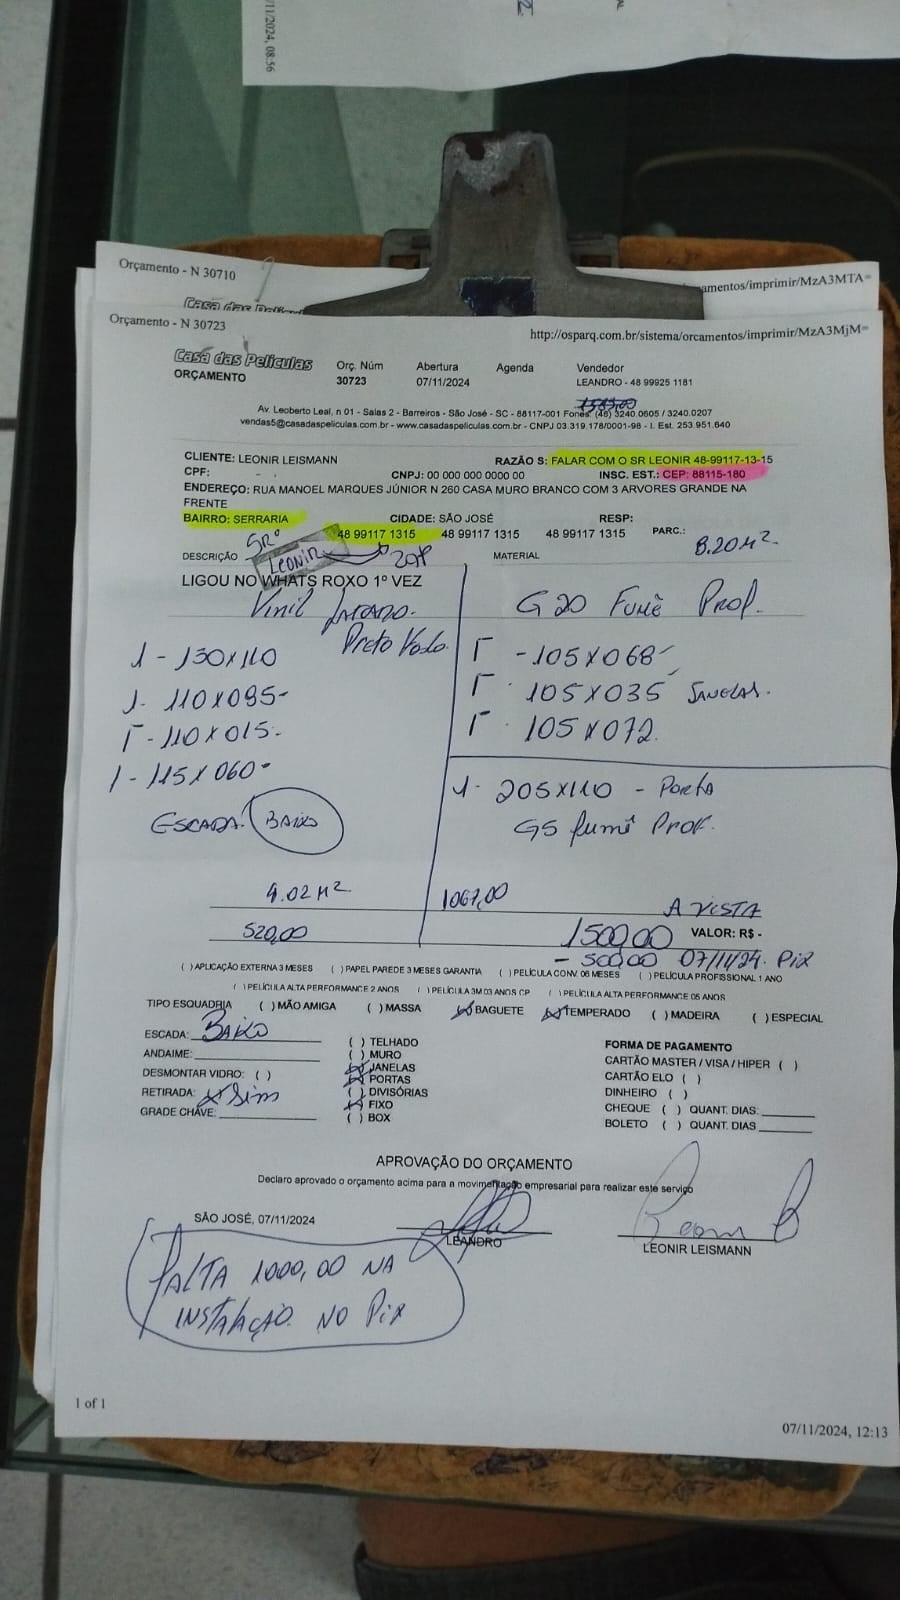 /11/2024, 08:56
Orçamento - N 30710
amentos/imprimir/MzA3MTA=
Casa das Películas
Orçamento - N 30723
http://osparq.com.br/sistema/orcamentos/imprimir/MzA3MjM=
Casa das Películas
ORÇAMENTO
Orç. Núm Abertura Agenda Vendedor
30723 07/11/2024 LEANDRO - 48 99925 1181
Av. Leoberto Leal, n 01 - Salas 2 - Barreiros - São José - SC - 88117-001 Fones: (48) 3240.0605 / 3240.0207
vendas5@casadaspeliculas.com.br - www.casadaspeliculas.com.br - CNPJ 03.319.178/0001-98 - I. Est. 253.951.640
CLIENTE: LEONIR LEISMANN RAZÃO S: FALAR COM O SR LEONIR 48-99117-13-15
CPF: - - CNPJ: 00 000 000 0000 00 INSC. EST.: CEP: 88115-180
ENDEREÇO: RUA MANOEL MARQUES JÚNIOR N 260 CASA MURO BRANCO COM 3 ARVORES GRANDE NA
FRENTE
BAIRRO: SERRARIA CIDADE: SÃO JOSÉ RESP:
48 99117 1315 48 99117 1315 48 99117 1315 PARC.:
SRº LEONIR
8.20M²
DESCRIÇÃO MATERIAL
LIGOU NO WHATS ROXO 1º VEZ
Vinil
Preto
1 - 130X110
1 - 110X095-
1 - 110X015-
1 - 115X060-
ESCADA: BAIXO
G20 FUMÊ PROF.
1 - 105X068
1 - 105X035 JANELAS.
1 - 105X072.
1 - 205X110 - Porta
G5 fumê Prof.
4.02M² 1067,00
A VISTA
520,00 1500,00 VALOR: R$ -
- 500,00 07/11/24. Pix
( ) APLICAÇÃO EXTERNA 3 MESES ( ) PAPEL PAREDE 3 MESES GARANTIA ( ) PELÍCULA CONV. 06 MESES ( ) PELÍCULA PROFISSIONAL 1 ANO
( ) PELÍCULA ALTA PERFORMANCE 2 ANOS ( ) PELÍCULA 3M 03 ANOS CP ( ) PELÍCULA ALTA PERFORMANCE 05 ANOS
TIPO ESQUADRIA ( ) MÃO AMIGA ( ) MASSA (X) BAGUETE (X) TEMPERADO ( ) MADEIRA ( ) ESPECIAL
ESCADA: BAIXO
ANDAIME:
DESMONTAR VIDRO: ( )
RETIRADA: X Sim
GRADE CHAVE:
( ) TELHADO
( ) MURO
(X) JANELAS
(X) PORTAS
( ) DIVISÓRIAS
(X) FIXO
( ) BOX
FORMA DE PAGAMENTO
CARTÃO MASTER / VISA / HIPER ( )
CARTÃO ELO ( )
DINHEIRO ( )
CHEQUE ( ) QUANT. DIAS:
BOLETO ( ) QUANT. DIAS
APROVAÇÃO DO ORÇAMENTO
Declaro aprovado o orçamento acima para a movimentação empresarial para realizar este serviço
SÃO JOSÉ, 07/11/2024
LEANDRO
LEONIR LEISMANN
FALTA 1000,00 NA
INSTALAÇÃO. NO Pix
1 of 1
07/11/2024, 12:13